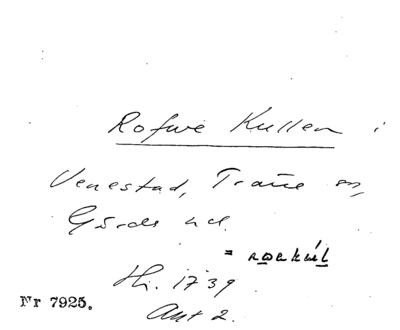 Rofwe Kullen i
Venestad, Trañe sn,
Gärds hd.
= 
Hi. 1739
Akt 2.
Nr 7925.